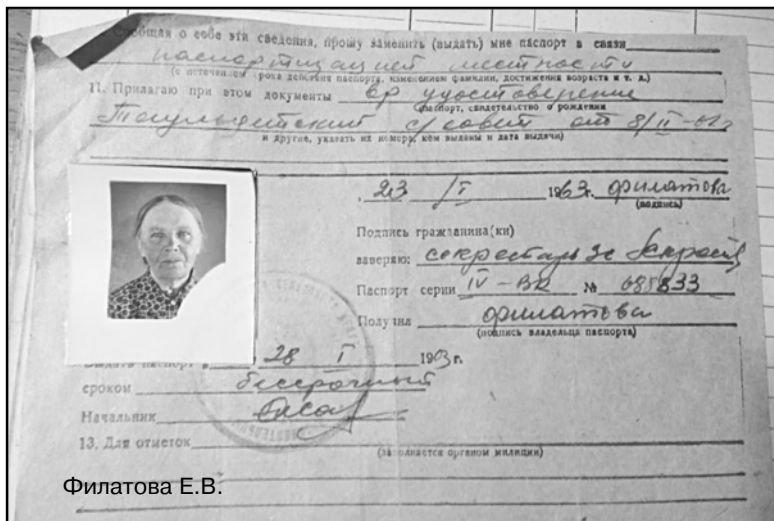 Сообщая о себе эти сведения, прошу заменить (выдать) мне паспорт в связи
паспортизацией местности
(с истечением срока действия паспорта, изменением фамилии, достижения возраста и т. д.)
11. Прилагаю при этом документы вр удостоверение
(паспорт, свидетельство о рождении
с/совет от 8/II-62г
и другие, указать их номера, кем выданы и дата выдачи)
23 /I 1963г. Филатова
(подпись)
Подпись гражданина(ки)
заверяю: секретарь
Паспорт серии IV-ВК № 688833
Получил Филатова
(подпись владельца паспорта)
Выдать паспорт 28 I 1963г.
сроком бессрочный
Начальник
13. Для отметок
(заполняется органом милиции)
Филатова Е.В.